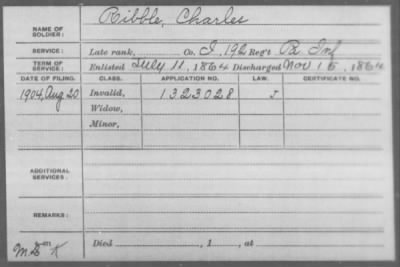 NAME OF SOLDIER: Ribble, Charles
SERVICE: Late rank, Co. I, 192 Reg't Pa Inf
TERM OF SERVICE: Enlisted July 11, 1864 Discharged Nov 1, 1864
DATE OF FILING. CLASS. APPLICATION NO. LAW. CERTIFICATE NO.
1904, Aug 20 Invalid, 1323028
Widow,
Minor,
ADDITIONAL SERVICES:
REMARKS:
Died , 1 , at